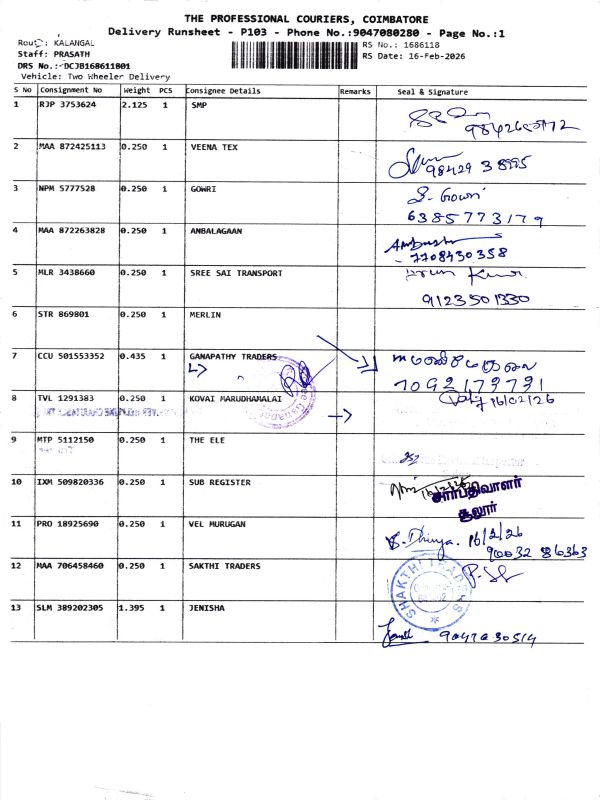 THE PROFESSIONAL COURIERS, COIMBATORE
Delivery Runsheet - P103 - Phone No.:9047080280 - Page No.:1
Route: KALANGAL
Staff: PRASATH
DRS No.: DCJB168611801
Vehicle: Two Wheeler Delivery
RS No.: 1686118
RS Date: 16-Feb-2026
S No Consignment No Weight PCS Consignee Details Remarks Seal & Signature
1 RJP 3753624 2.125 1 SMP
2 MAA 872425113 0.250 1 VEENA TEX
3 NPM 5777528 0.250 1 GOWRI S. Gowri
6385773179
4 MAA 872263828 0.250 1 ANBALAGAAN
7708430358
5 MLR 3438660 0.250 1 SREE SAI TRANSPORT
9123501330
6 STR 869801 0.250 1 MERLIN
7 CCU 501553352 0.435 1 GANAPATHY TRADERS
7092179791
8 TVL 1291383 0.250 1 KOVAI MARUDHAMALAI 16/02/26
9 MTP 5112150 0.250 1 THE ELE
10 IXM 509820336 0.250 1 SUB REGISTER 16/2/26
சார்பதிவாளர்
சூலூர்
11 PRO 18925690 0.250 1 VEL MURUGAN
S. Dhivya. 16/2/26
90032 86363
12 MAA 706458460 0.250 1 SAKTHI TRADERS
SHAKTHI TRADERS
13 SLM 389202305 1.395 1 JENISHA